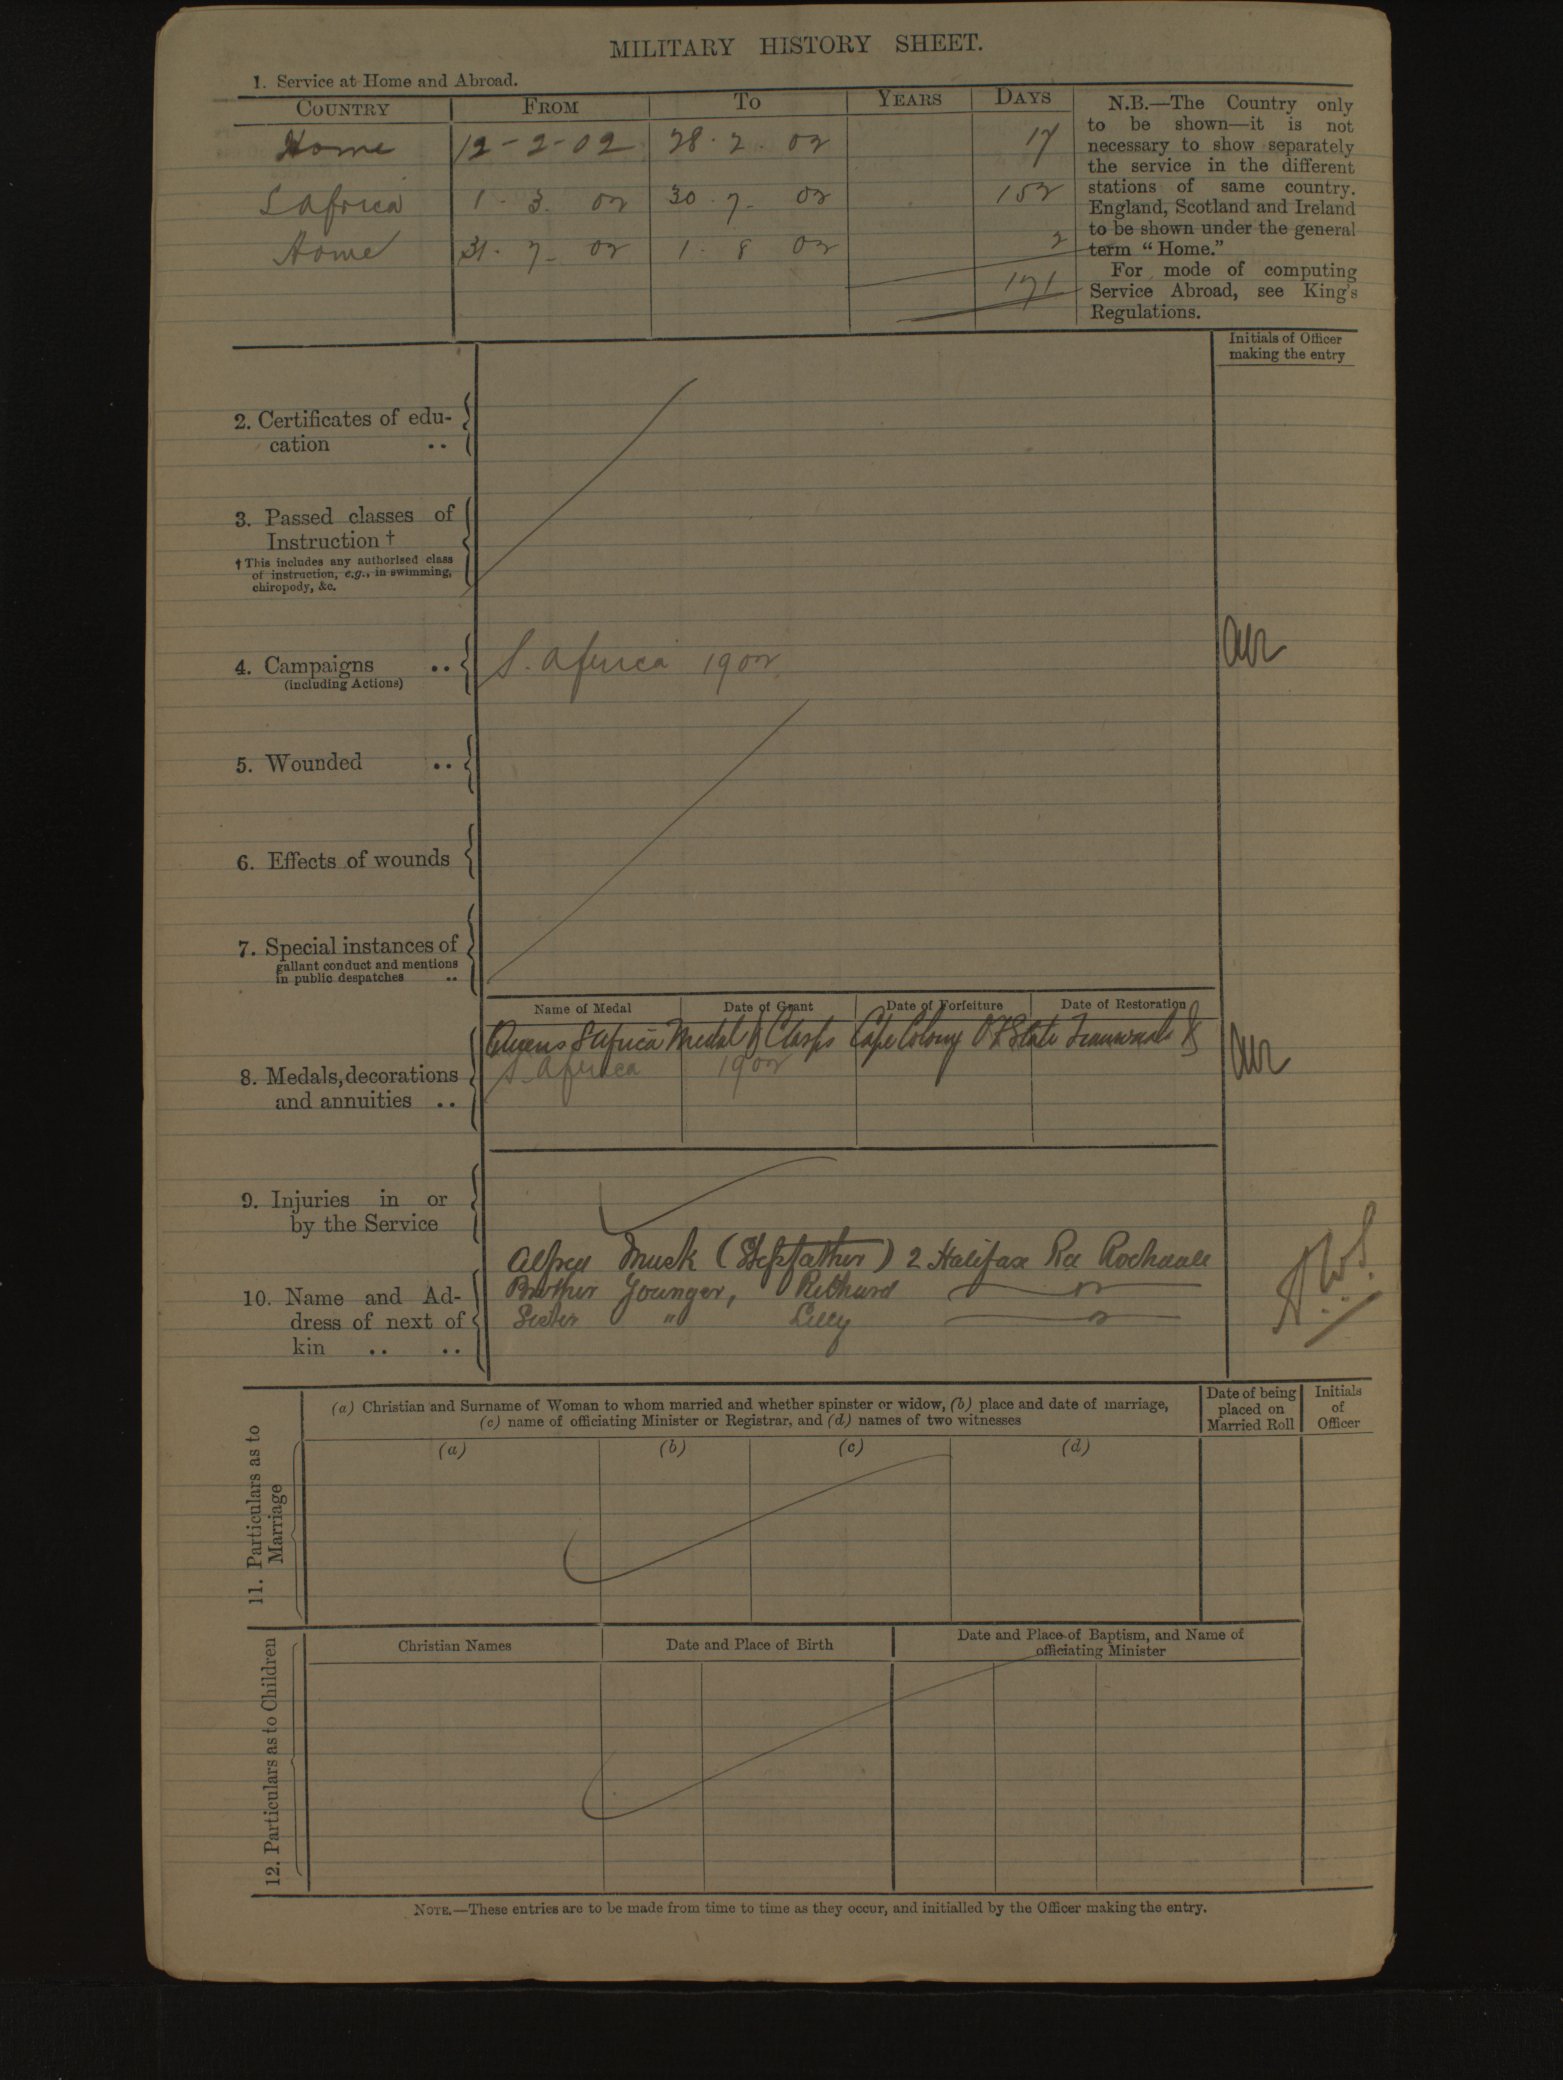 MILITARY HISTORY SHEET.
1. Service at Home and Abroad.
COUNTRY FROM TO YEARS DAYS
Home 12-2-02 28.2.02 17
S Africa 1.3.02 30.7.02 152
Home 31.7.02 1.8.02 2
171
N.B.—The Country only
to be shown—it is not
necessary to show separately
the service in the different
stations of same country.
England, Scotland and Ireland
to be shown under the general
term "Home."
For mode of computing
Service Abroad, see King's
Regulations.
Initials of Officer
making the entry
2. Certificates of edu-
cation ..
3. Passed classes of
Instruction †
† This includes any authorised class
of instruction, e.g., in swimming,
chiropody, &c.
4. Campaigns .. S. Africa 1902
(including Actions)
5. Wounded ..
6. Effects of wounds
7. Special instances of
gallant conduct and mentions
in public despatches ..
Name of Medal Date of Grant Date of Forfeiture Date of Restoration
Queens S Africa Medal & Clasps Cape Colony O F State Transvaal &
S. Africa 1902
8. Medals, decorations
and annuities ..
9. Injuries in or
by the Service
Alfred Musk (Stepfather) 2 Halifax Rd Rochdale
Brother Younger, Richard
Sister " Lilly
10. Name and Ad-
dress of next of
kin .. ..
A.W.S.
11. Particulars as to
Marriage
(a) Christian and Surname of Woman to whom married and whether spinster or widow, (b) place and date of marriage,
(c) name of officiating Minister or Registrar, and (d) names of two witnesses
Date of being
placed on
Married Roll
Initials
of
Officer
(a) (b) (c) (d)
12. Particulars as to Children
Christian Names Date and Place of Birth
Date and Place of Baptism, and Name of
officiating Minister
NOTE.—These entries are to be made from time to time as they occur, and initialled by the Officer making the entry.